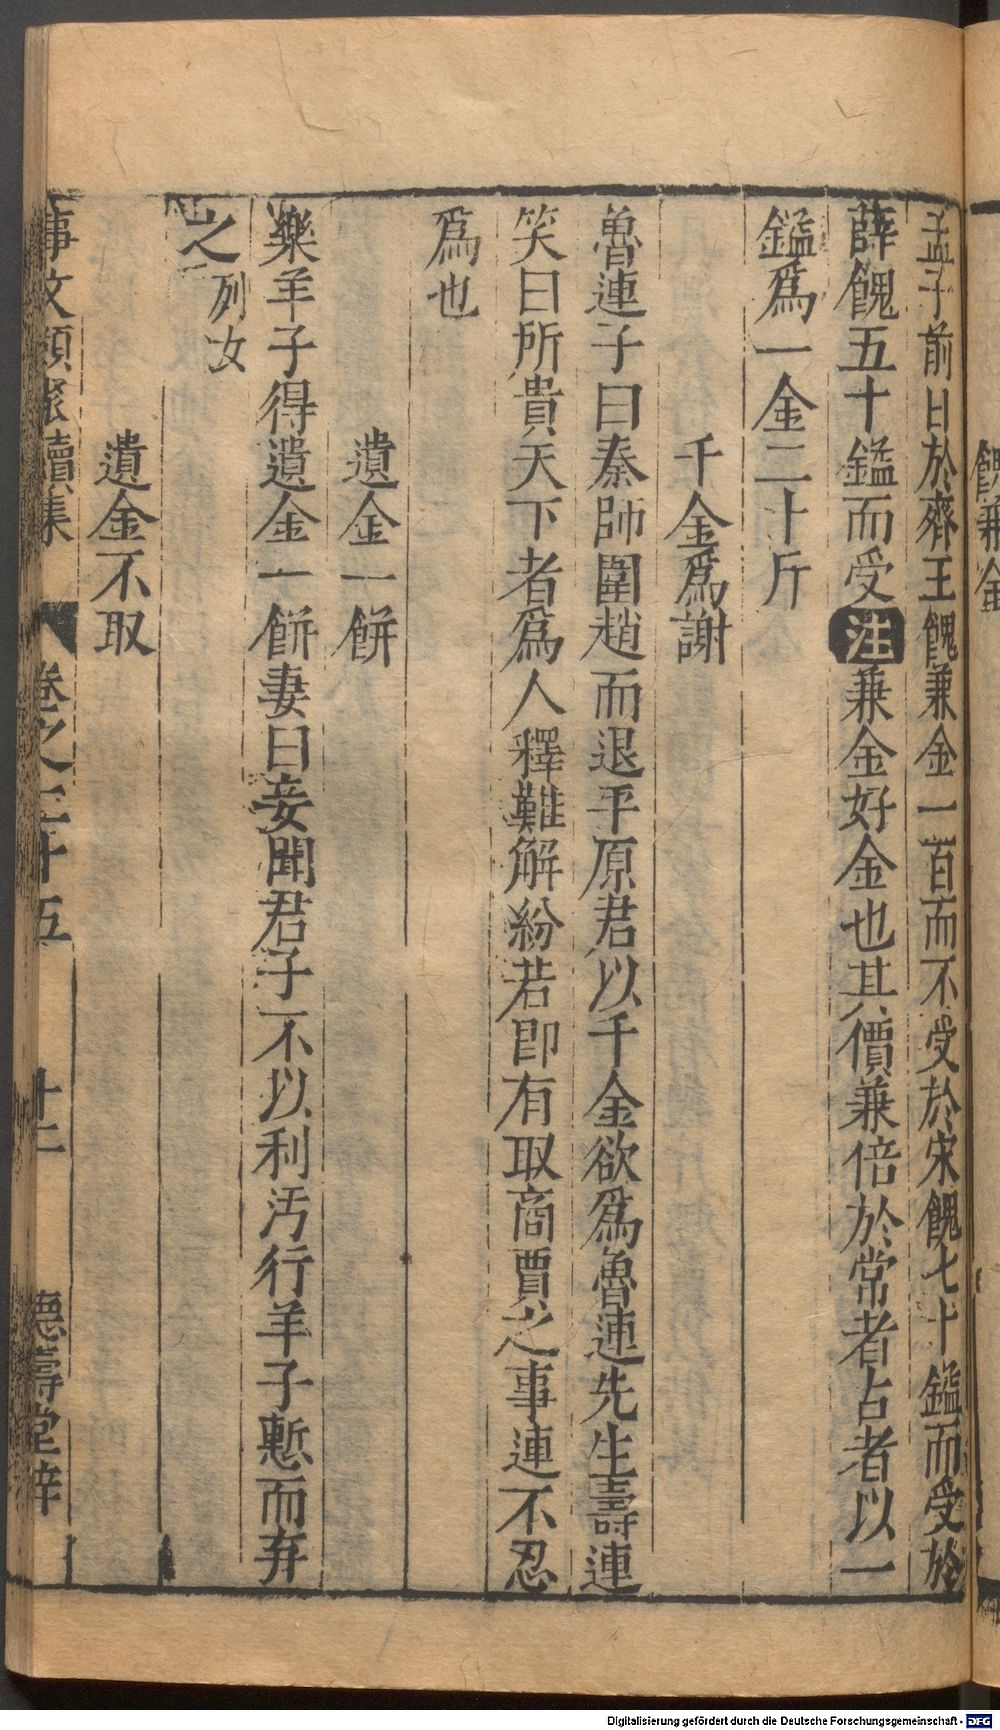 餽兼金
孟子前日於齊王餽兼金一百而不受於宋餽七十鎰而受於
薛餽五十鎰而受注兼金好金也其價兼倍於常者占者以一
鎰爲一金二十斤
千金爲謝
魯連子曰秦師圍趙而退平原君以千金欲爲魯連先生壽連
笑曰所貴天下者爲人釋難解紛若即有取商賈之事連不忍
爲也
遺金一餅
樂羊子得遺金一餅妻曰妾聞君子不以利汚行羊子慙而弃
之列女
遺金不取
事文類聚續集 卷之二十五 十二 德壽堂梓
Digitalisierung gefördert durch die Deutsche Forschungsgemeinschaft - DFG